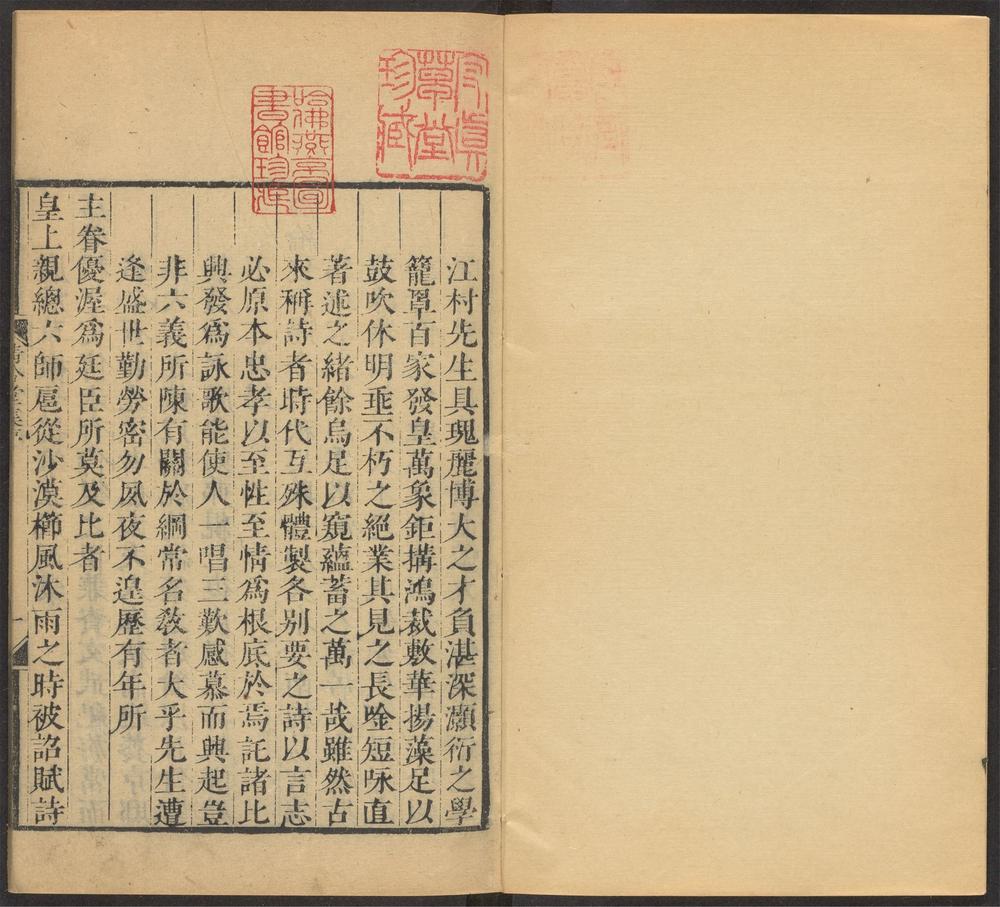 江村先生具瑰麗博大之才負湛深灝衍之學
籠罩百家發皇萬象鉅搆鴻裁敷華揚藻足以
鼓吹休明垂不朽之絕業其見之長唫短咏直
著述之緒餘烏足以窺蘊蓄之萬一哉雖然古
來稱詩者時代互殊體製各別要之詩以言志
必原本忠孝以至性至情爲根底於焉託諸比
興發爲詠歌能使人一唱三歎感慕而興起豈
非六義所陳有關於綱常名敎者大乎先生遭
逢盛世勤勞密勿夙夜不遑歷有年所
主眷優渥爲廷臣所莫及比者
皇上親總六師扈從沙漠櫛風沐雨之時被詔賦詩
哈佛燕京圖
書館珍藏
守真
草堂
珍藏